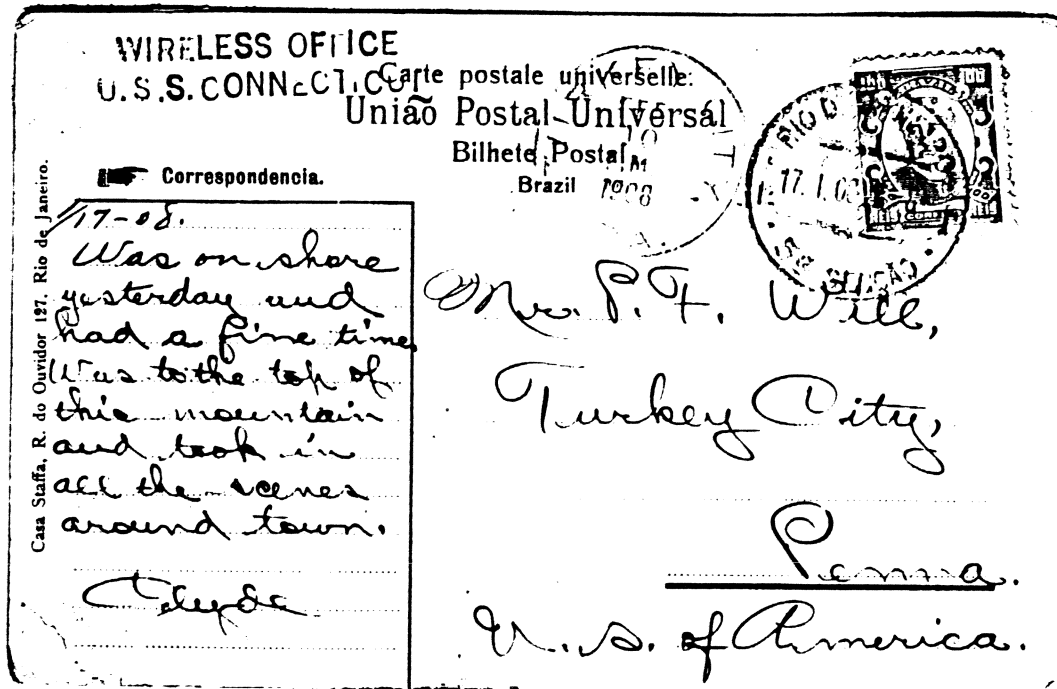 WIRELESS OFFICE
U.S.S. CONNECTICUT
Carte postale universelle:
União Postal Universal
Bilhete Postal
Brazil
1908
RIO DE JANEIRO
17.1.08
Correspondencia.
Casa Staffa, R. do Ouvidor 127, Rio de Janeiro.
1/17-08.
Was on shore
yesterday and
had a fine time.
Was to the top of
this mountain
and took in
all the scenes
around town.
Clyde
Mr. P. F. Will,
Turkey City,
Penna.
U. S. of America.